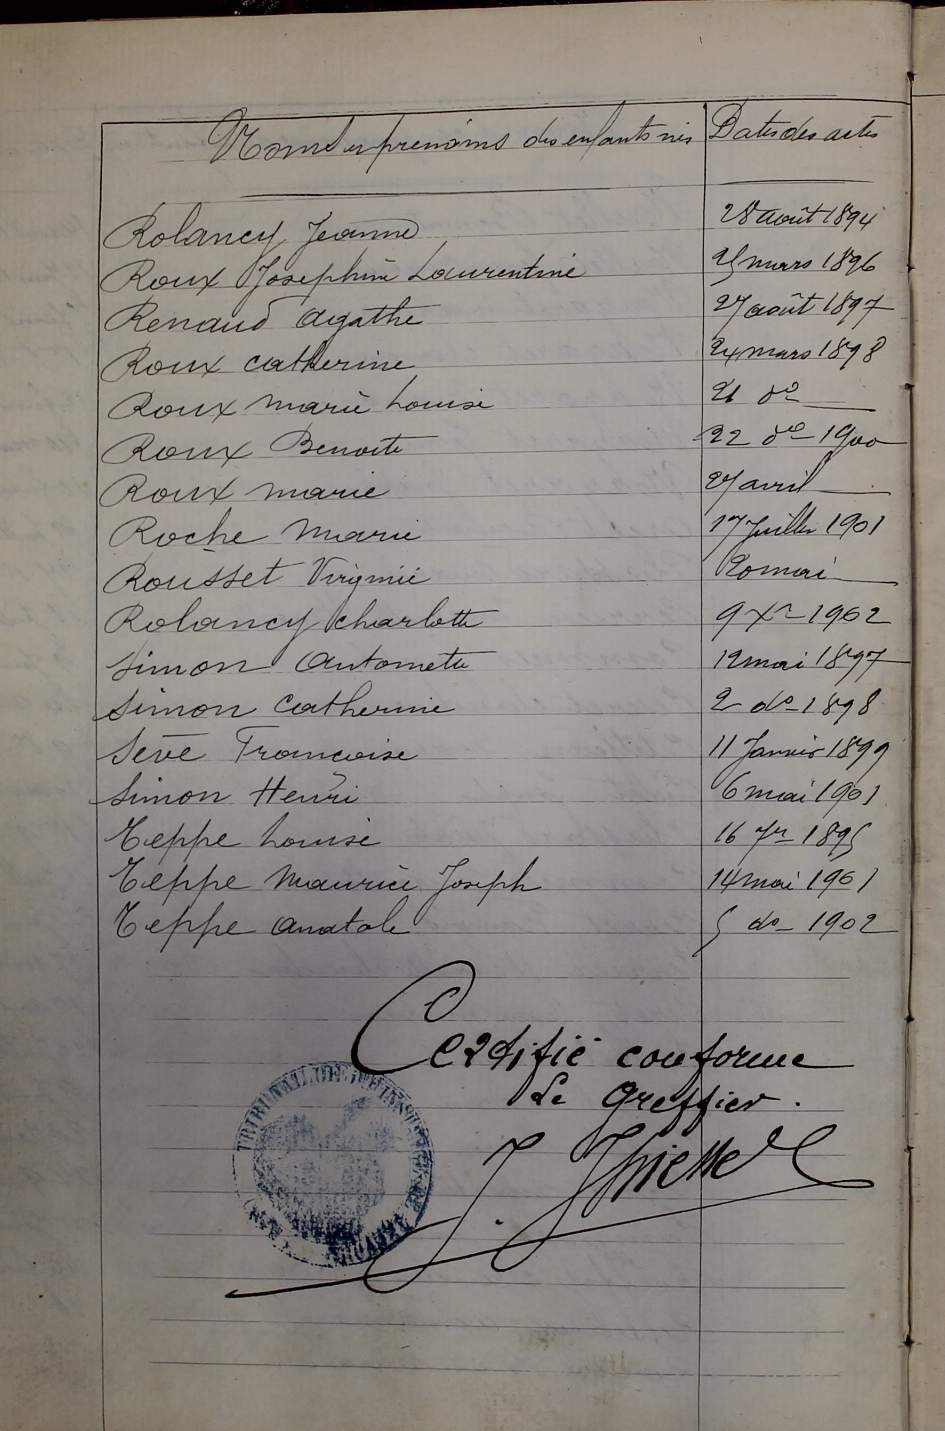 Noms et prénoms des enfants nés Dates des actes
Rolancy Jeanne 28 août 1894
Roux Josephine Laurentine 25 mars 1896
Renaud Agathe 27 août 1897
Roux Catherine 24 mars 1898
Roux Marie Louise 21 do
Roux Benoite 22 do 1900
Roux Marie 27 avril
Roche Marie 17 Juillet 1901
Rousset Virginie 20 mai
Rolancy Charlotte 9 Xre 1902
Simon Antoinette 12 mai 1897
Simon Catherine 2 do 1898
Sève Françoise 11 Janvier 1899
Simon Henri 6 mai 1901
Teppe Louise 16 7re 1895
Teppe Maurice Joseph 14 mai 1901
Teppe Anatole 5 do 1902
Certifié conforme
Le Greffier.
TRIBUNAL DE 1RE INSTANCE